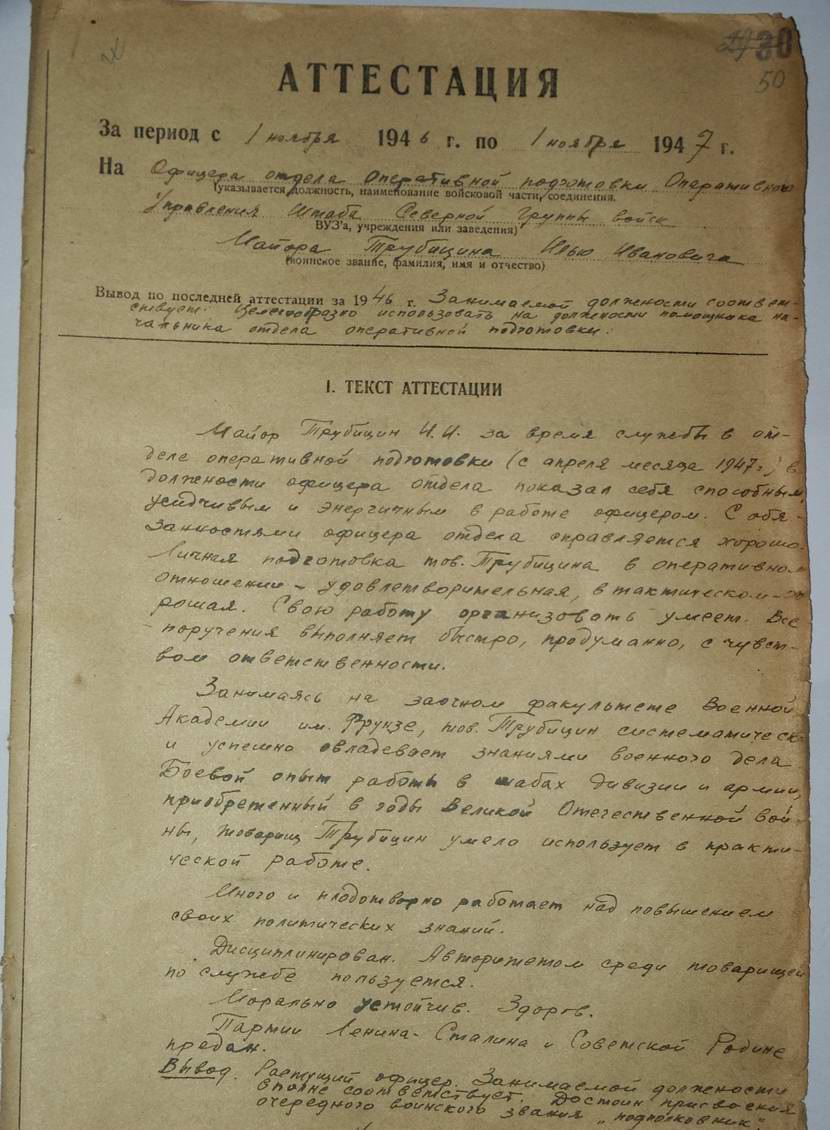 30
50
АТТЕСТАЦИЯ
За период с 1 ноября 1946 г. по 1 ноября 1947 г.
На Офицера отдела Оперативной подготовки Оперативного
(указывается должность, наименование войсковой части, соединения.
Управления Штаба Северной Группы войск
ВУЗ'а, учреждения или заведения)
Майора Трубицина Илью Ивановича
(воинское звание, фамилия, имя и отчество)
Вывод по последней аттестации за 1946 г. Занимаемой должности соответ-
ствует. Целесообразно использовать на должности помощника на-
чальника отдела оперативной подготовки.
I. ТЕКСТ АТТЕСТАЦИИ
Майор Трубицин И.И. за время службы в от-
деле оперативной подготовки (с апреля месяца 1947г.) в
должности офицера отдела показал себя способным,
усидчивым и энергичным в работе офицером. С обя-
занностями офицера отдела справляется хорошо.
Личная подготовка тов. Трубицина в оперативном
отношении – удовлетворительная, в тактическом –
рошая. Свою работу организовать умеет. Все
поручения выполняет быстро, продуманно, с чувст-
вом ответственности.
Занимаясь на заочном факультете Военной
Академии им. Фрунзе, тов. Трубицин систематическ
и успешно овладевает знаниями военного дела
Боевой опыт работы в штабах дивизии и армии,
приобретенный в годы Великой Отечественной вой-
ны, товарищ Трубицин умело использует в практи-
ческой работе.
Много и плодотворно работает над повышением
своих политических знаний.
Дисциплинирован. Авторитетом среди товарищей
по службе пользуется.
Морально устойчив. Здоров.
Партии Ленина-Сталина и Советской Родине
предан.
Вывод. Растущий офицер. Занимаемой должности
вполне соответствует. Достоин присвоения
очередного воинского звания „подполковник".